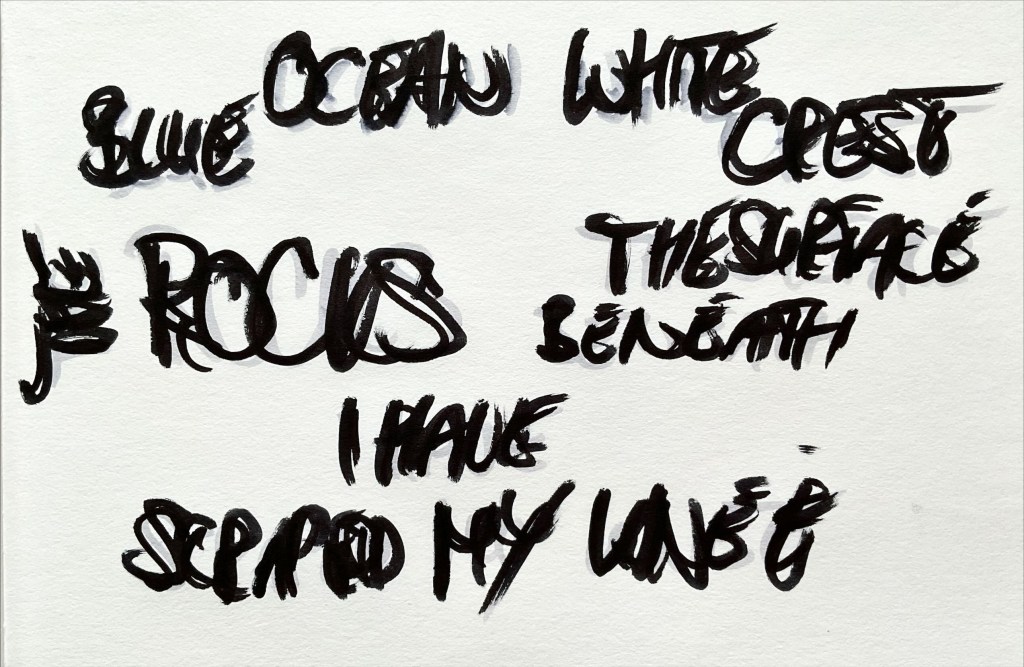 BLUE OCEAN WHITE CREST
ROCKS THE SURFACE
BENEATH
I HAVE
SCRAPED MY